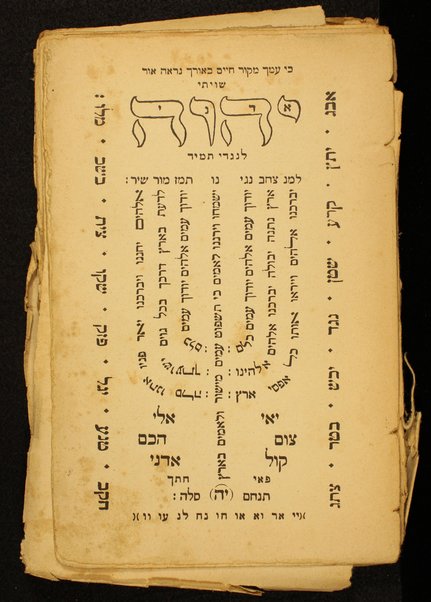 כי עמך מקור חיים באורך נראה אור
שויתי
יהוה
לנגדי תמיד
למנ צחב נגי נו תמז מור שיר:
אבג • יתץ • קרע • שטן • נגד • יכש • בטר • צתג
יברכנו אלהים וייראו אותו כל אפסי ארץ:
ארץ נתנה יבולה יברכנו אלהים אלהינו:
יודוך עמים אלהים יודוך עמים כלם:
ישמחו וירננו לאמים כי תשפוט עמים מישור ולאמים בארץ
יודוך עמים אלהים יודוך עמים כלם:
לדעת בארץ דרכך בכל גוים ישועתך:
אלהים יחננו ויברכנו יאר פניו אתנו סלה:
חקב • טנע • יגל • פזק • שקו • צית • בשכ • מלו:
יאי אלי
צום הכם
קול אדני
פאי חתך
תנחם (יה) סלה:
)יי אר וא או חו נח לג עו וו(